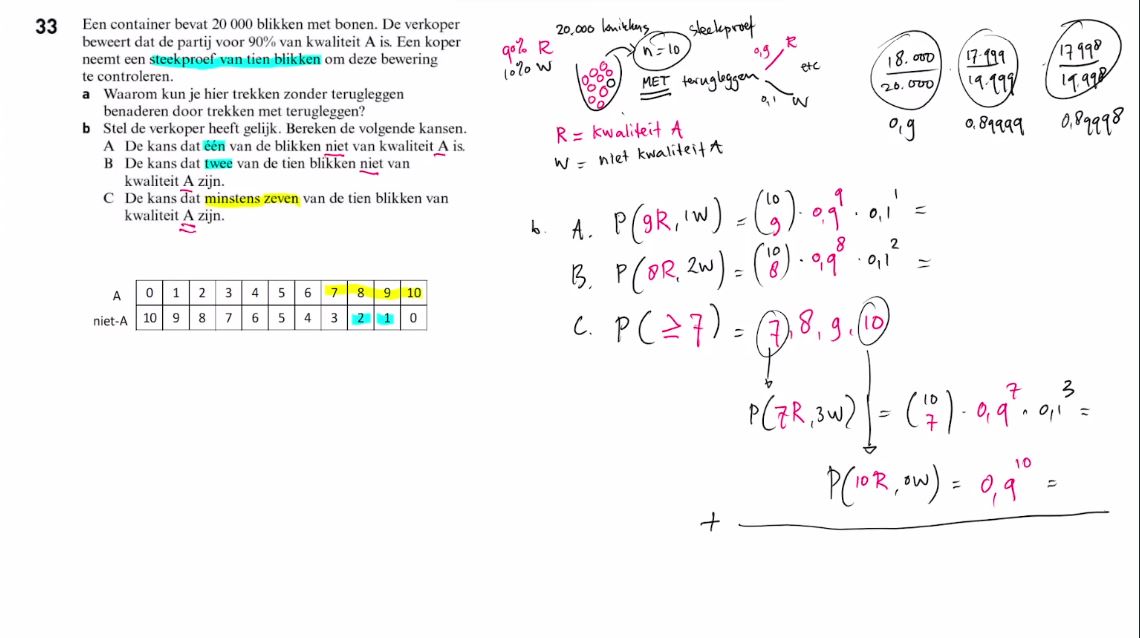 33 Een container bevat 20 000 blikken met bonen. De verkoper
beweert dat de partij voor 90% van kwaliteit A is. Een koper
neemt een steekproef van tien blikken om deze bewering
te controleren.
a Waarom kun je hier trekken zonder terugleggen
benaderen door trekken met terugleggen?
b Stel de verkoper heeft gelijk. Bereken de volgende kansen.
A De kans dat één van de blikken niet van kwaliteit A is.
B De kans dat twee van de tien blikken niet van
kwaliteit A zijn.
C De kans dat minstens zeven van de tien blikken van
kwaliteit A zijn.
A 0 1 2 3 4 5 6 7 8 9 10
niet-A 10 9 8 7 6 5 4 3 2 1 0
20.000 knikkers
steekproef
90% R
10% W
n = 10
MET terugleggen
0,9 R
etc
0,1 W
R = kwaliteit A
W = niet kwaliteit A
18.000/20.000 · 17.999/19.999 · 17998/19.998
0,9 0,89999 0,89998
b. A. P(9R, 1W) = (10 9) · 0,9^9 · 0,1^1 =
B. P(8R, 2W) = (10 8) · 0,9^8 · 0,1^2 =
C. P(≥7) = 7, 8, 9, 10
P(7R, 3W) = (10 7) · 0,9^7 · 0,1^3 =
P(10R, 0W) = 0,9^10 =
+